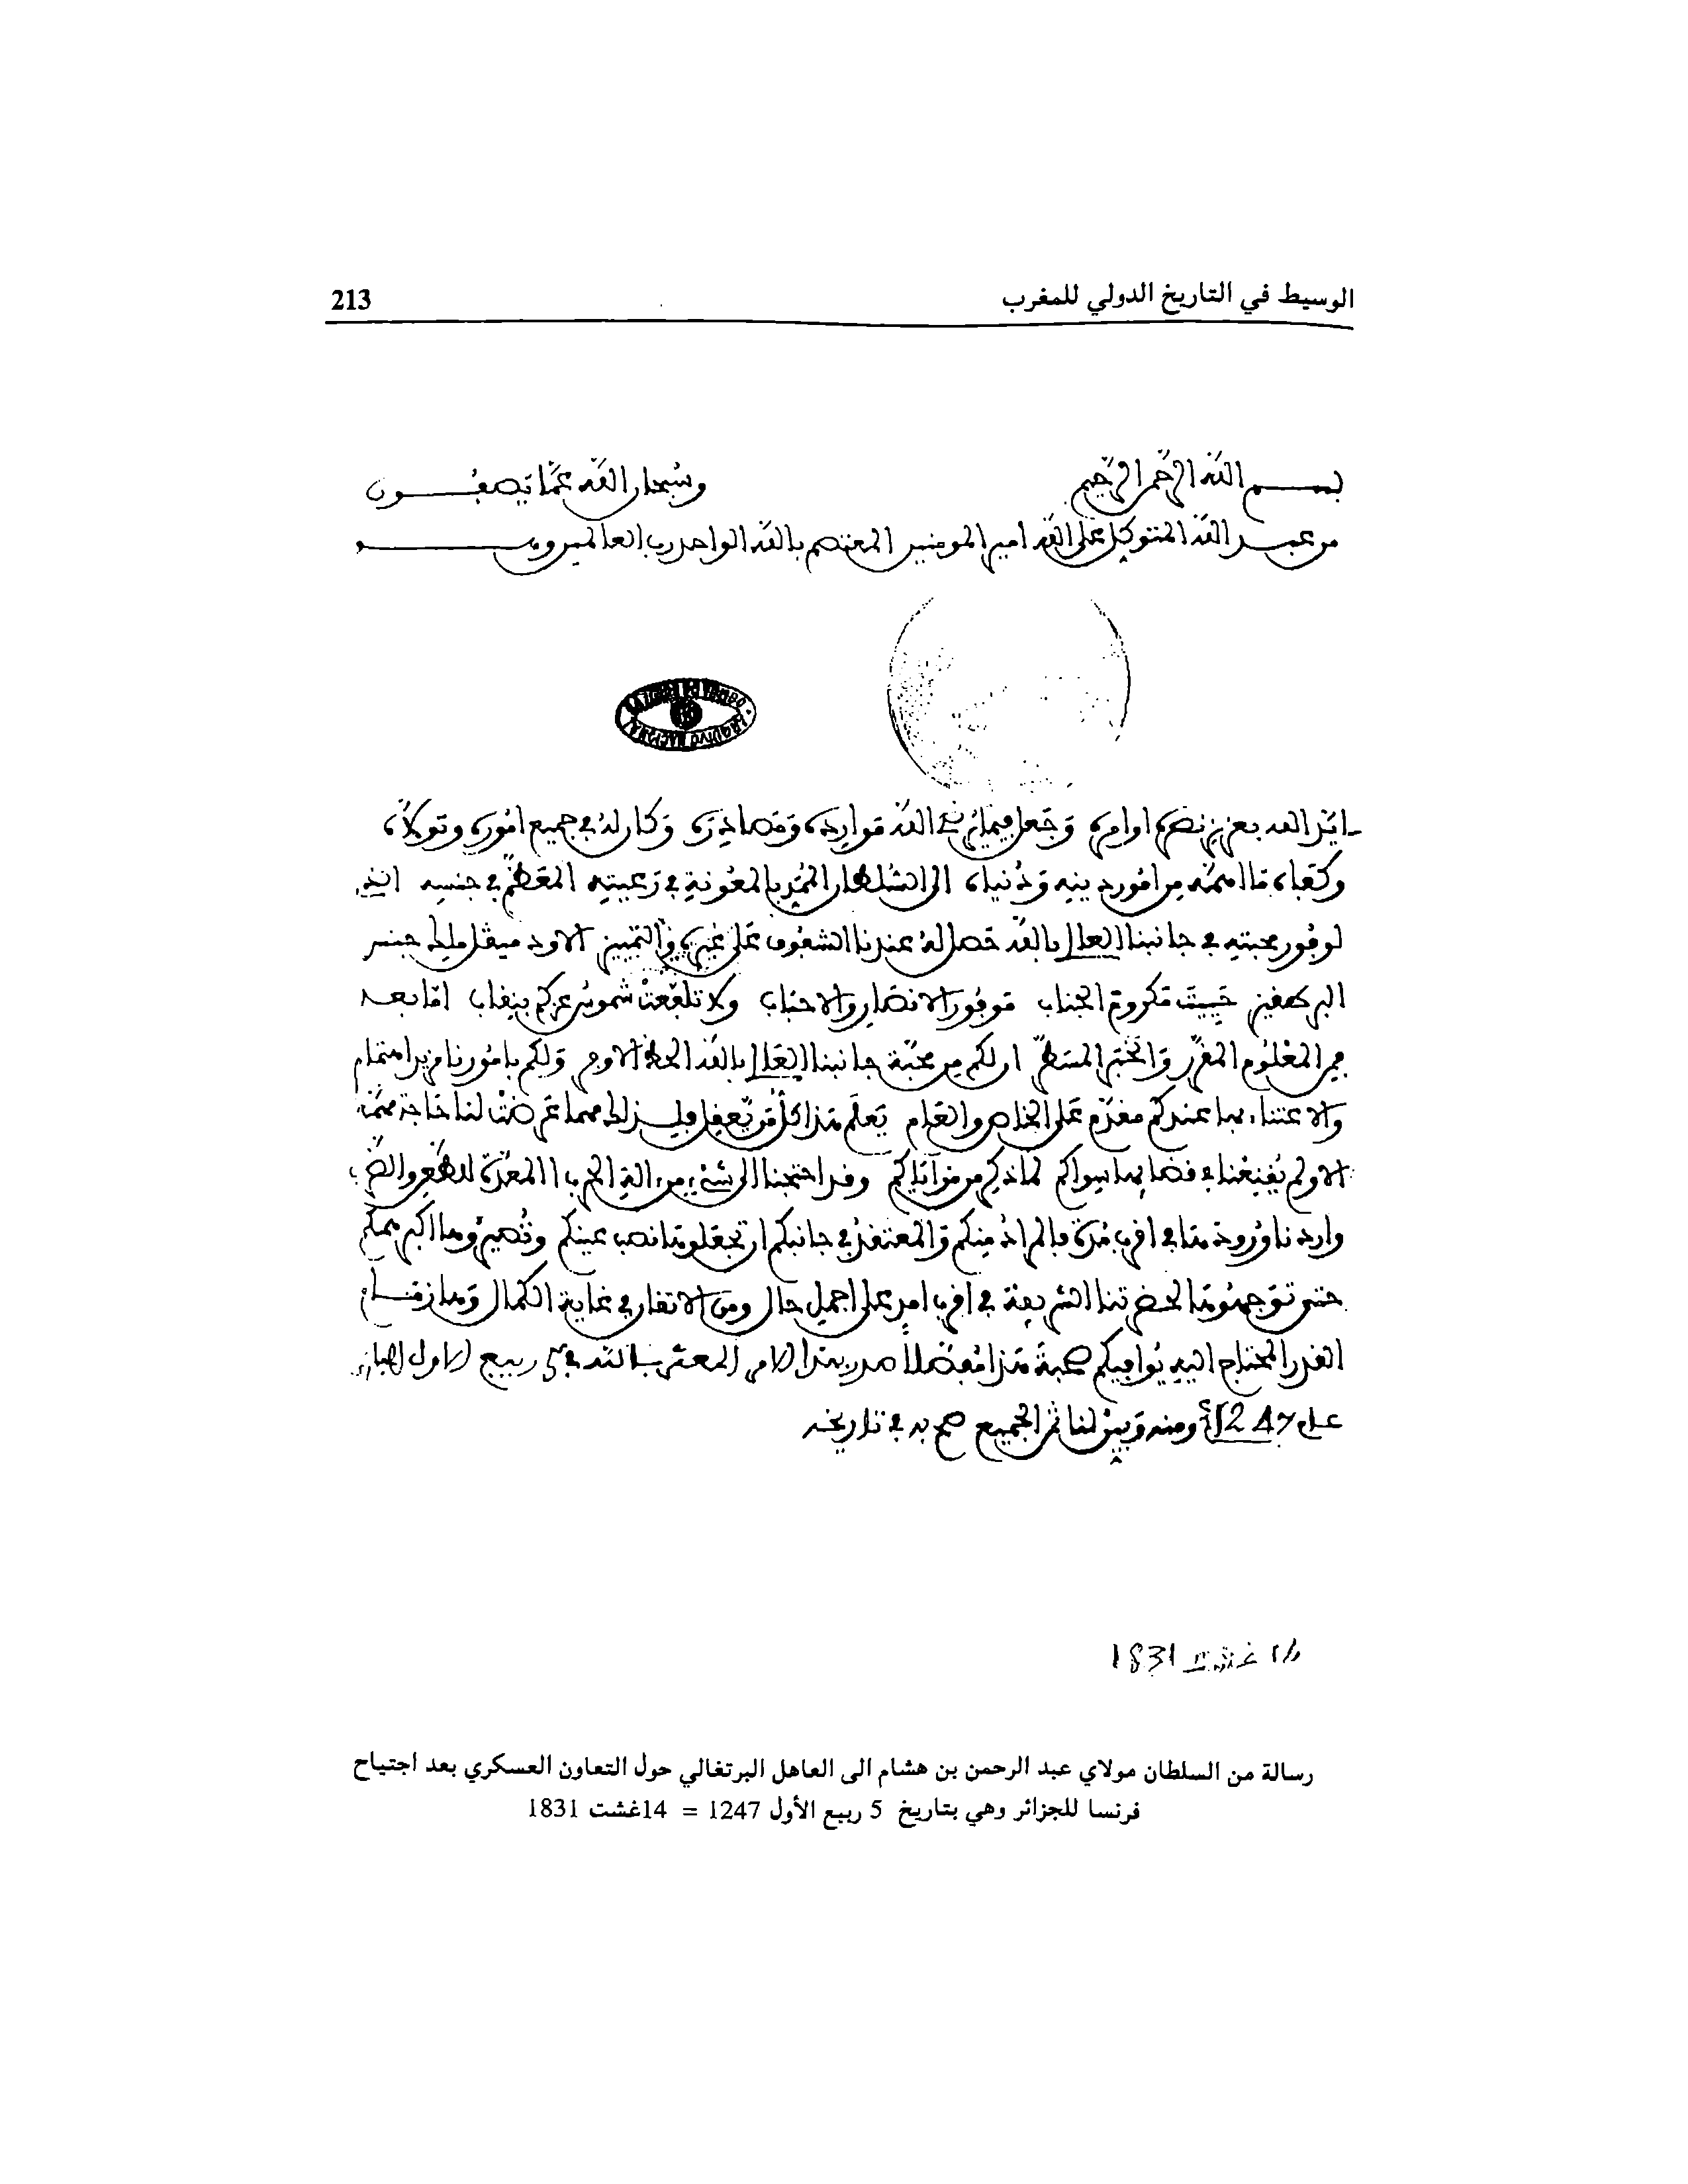 الوسيط في التاريخ الدولي للمغرب
213
بسم الله الرحمن الرحيم وسبحان الله عما يصفون
من عبد الله المتوكل على الله امير المومنين المعتصم بالله الواحد رب العالمين وهو
ايد الله بعزيز نصره اوامره وجعل فيما يرضي الله موارده ومصادره وكان له في جميع اموره وتولاه
وكفاه ما اهمه من امور دينه ودنياه الى السلطان بالمعونة في رعيته المعظم في جنسه الذي
لوفور محبته في جانبنا العالي بالله حصل له عندنا الشفوف على غيره والتمييز
البرطقيز حييت مكروم الجناب موفور الانصار والاحباب ولا تلفعت شموس عزكم بنقاب اما بعد
فمن المعلوم المقرر ان لكم من محبة جانبنا العالي بالله الحظ الاوفر ولكم بامورنا مزيد اهتمام
والاعتناء بما عندكم على الخاص والعام يعلم هذا كل من يعقل مهما عرضت لنا حاجة مهمة
الا ولم يقنعنا في قضائها سواكم لما ذكر وقد احتجنا الى شيء من الة الحرب المعدة للطعن والضرب
واردنا ورودها في اقرب مدة فالمراد منكم والمعتقد في جانبكم ان تجعلوها نصب عينكم
حتى توجهوها لحضرتنا الشريفة في اقرب امد على اجمل حال ومن الاتقان في غاية الكمال
القدر المحتاج اليه يوافيكم صحبة هذا مفصلا صدر بهذا الامر المعتز بالله في 5 ربيع الاول
عام 1247 ومنه الجميع صح به في تاريخه
14 غشت 1831
رسالة من السلطان مولاي عبد الرحمن بن هشام الى العاهل البرتغالي حول التعاون العسكري بعد اجتياح
فرنسا للجزائر وهي بتاريخ 5 ربيع الأول 1247 = 14غشت 1831